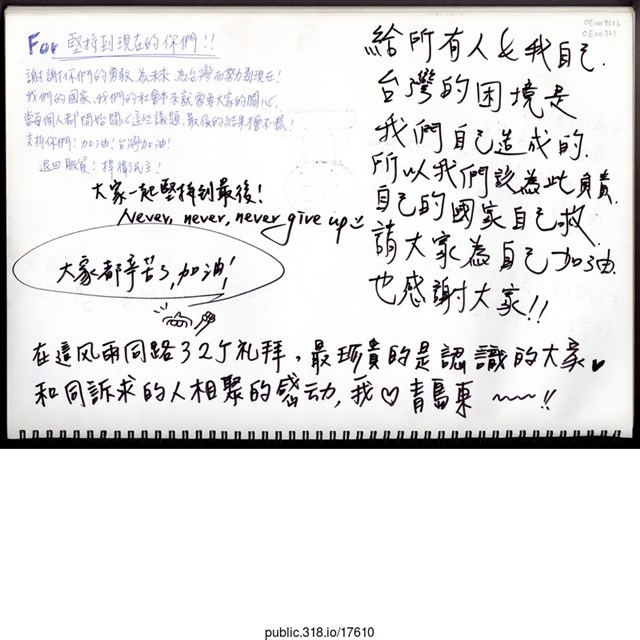 For 堅持到現在的你們!!
謝謝你們的勇敢,為未來,為台灣而努力到現在!
我們的國家,我們的社會本來就需要大家的關心,
當每個人都開始關心這些議題,最後的結果會不一樣!
支持你們!加油!台灣加油!
退回服貿!捍衛民主!
大家一起堅持到最後!
Never, never, never give up
大家都辛苦了,加油!
OE009
OE00921
給所有人&我自己.
台灣的困境是
我們自己造成的.
所以我們該為此負責.
自己的國家自己救.
請大家為自己加油.
也感謝大家!!
在這风雨同路了2个礼拜,最珍貴的是認識的大家♥
和同訴求的人相聚的感动,我♡青島東~~!!
public.318.io/17610